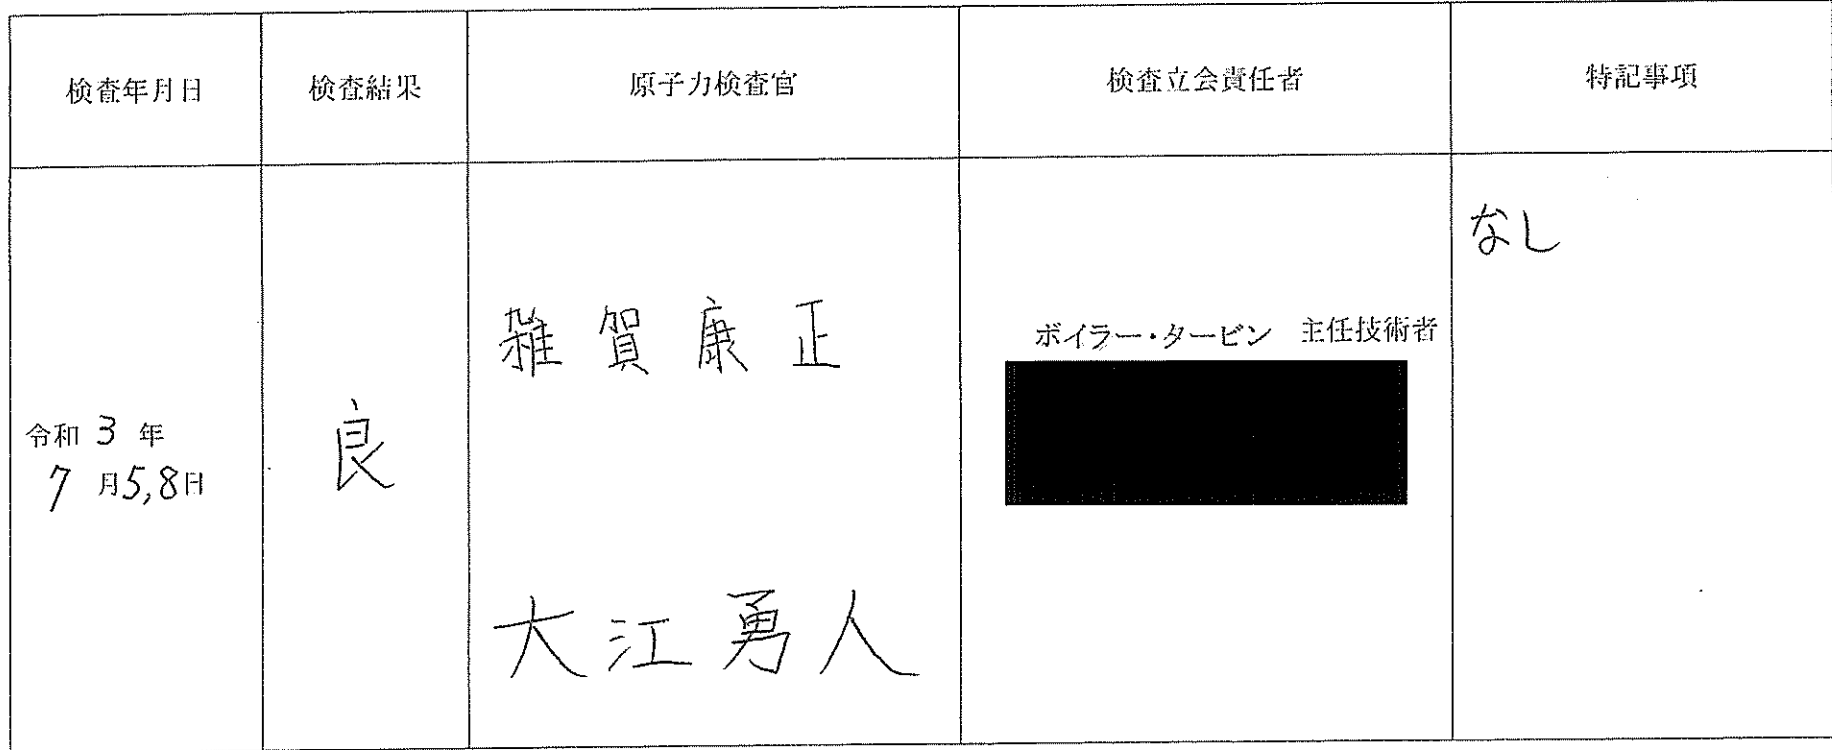 検査年月日
検査結果
原子力検査官
検査立会責任者
特記事項
令和 3 年
7 月5,8日
良
雑賀康正
大江勇人
ボイラー・タービン 主任技術者
なし